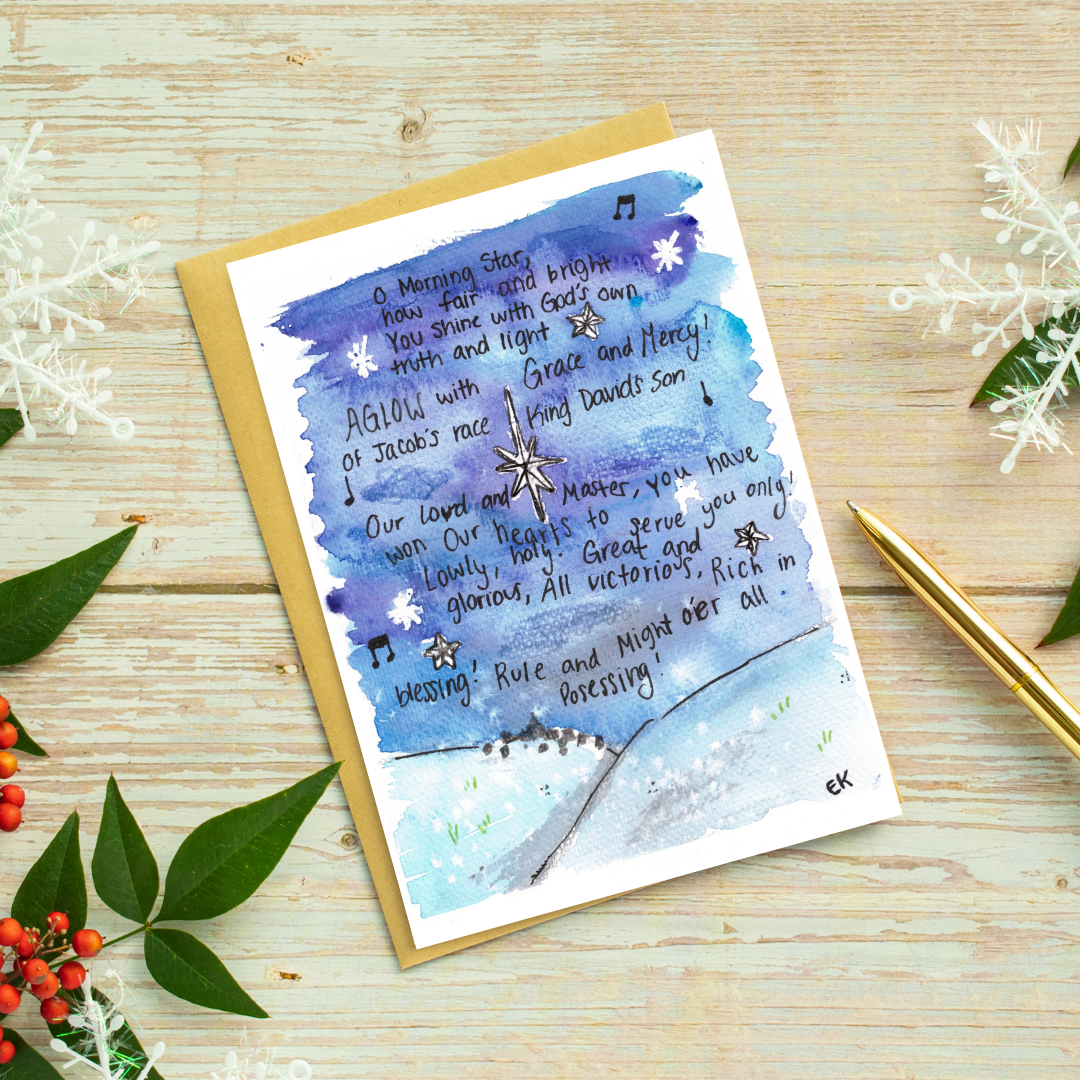 O Morning Star,
how fair and bright
You shine with God's own
truth and light
AGLOW with Grace and Mercy!
of Jacob's race King David's son
Our Lord and Master, you have
won Our hearts to serve you only!
Lowly, holy! Great and
glorious, All victorious, Rich in
blessing! Rule and Might o'er all
Posessing!
EK